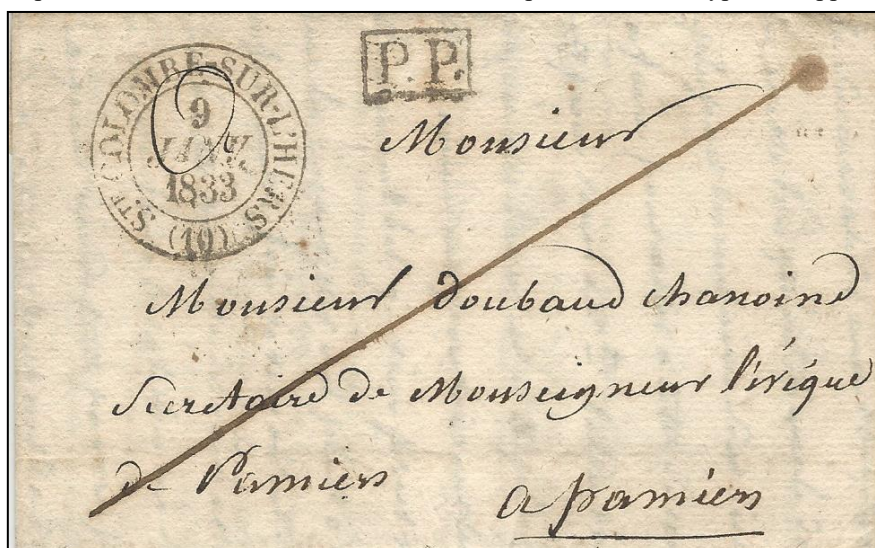 STE COLOMBE-SUR-L'HERS (10)
9
JANV.
1833
P.P.
Monsieur
Monsieur Doubaud chanoine
Secretaire de Monseigneur l'évêque
de Pamiers
a pamiers